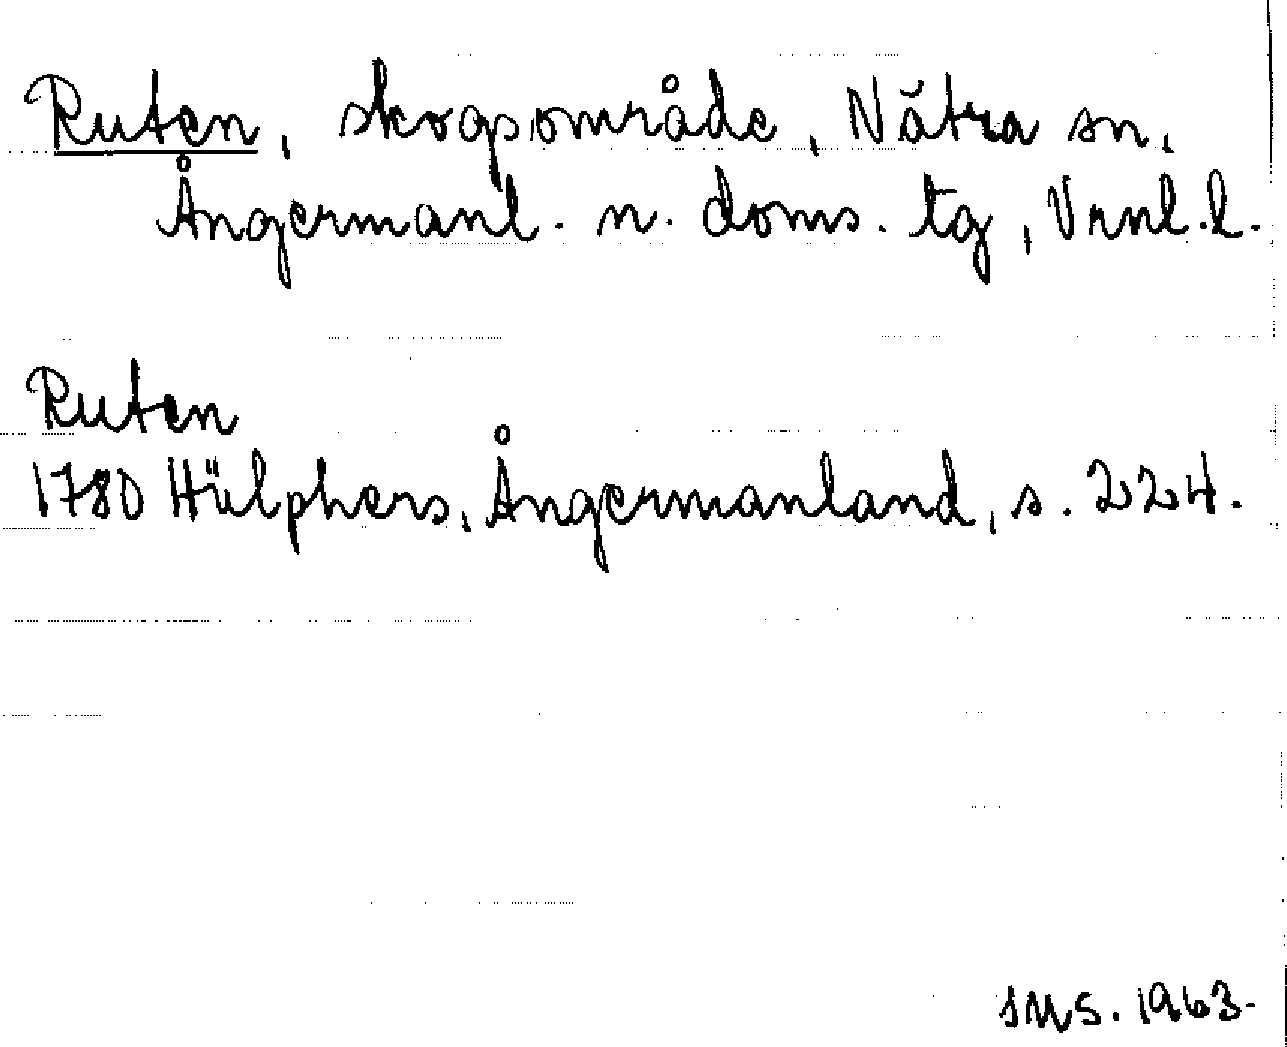 Ruten, skogsområde, Nätra sn.
Ångermanl. n. doms. tg, Vrnl. l.
Ruten
1780 Hülphers, Ångermanland, s. 224.
SMS. 1963.